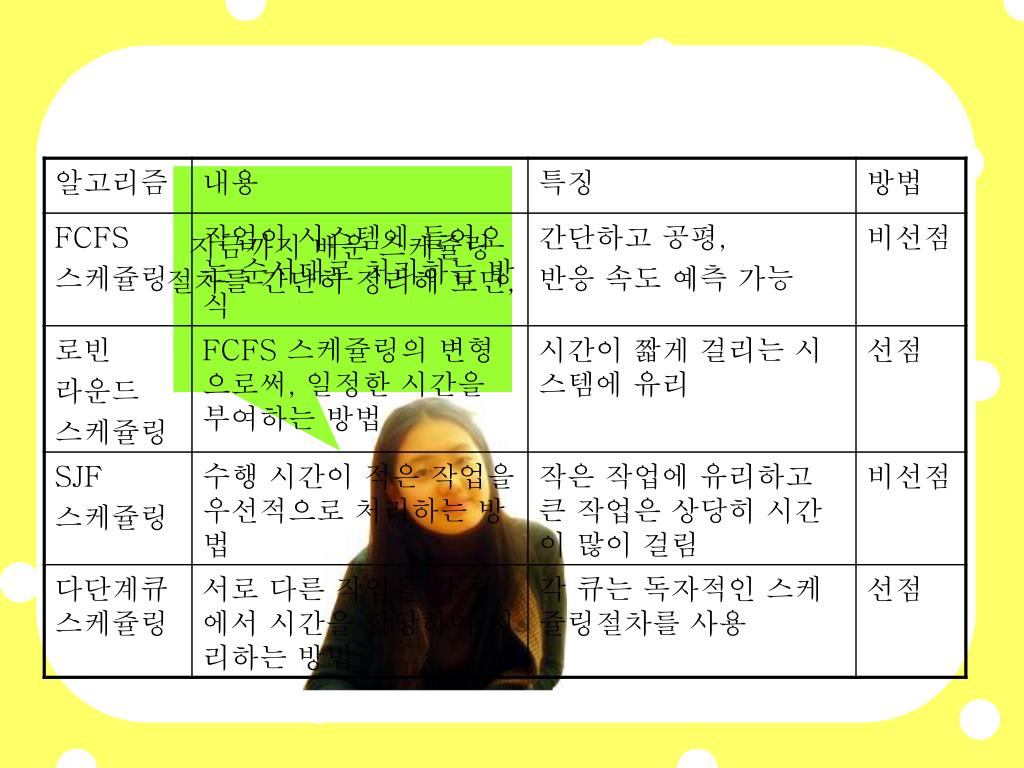 알고리즘
내용
특징
방법
FCFS
스케쥴링
작업이 시스템에 들어오
는 순서대로 처리하는 방
식
간단하고 공평,
반응 속도 예측 가능
비선점
지금까지 배운 스케쥴링
절차를 간단히 정리해 보면,
로빈
라운드
스케쥴링
FCFS 스케쥴링의 변형
으로써, 일정한 시간을
부여하는 방법
시간이 짧게 걸리는 시
스템에 유리
선점
SJF
스케쥴링
수행 시간이 적은 작업을
우선적으로 처리하는 방
법
작은 작업에 유리하고
큰 작업은 상당히 시간
이 많이 걸림
비선점
다단계큐
스케쥴링
서로 다른 작업을 각 큐
에서 시간을 할당하여 처
리하는 방법
각 큐는 독자적인 스케
쥴링절차를 사용
선점